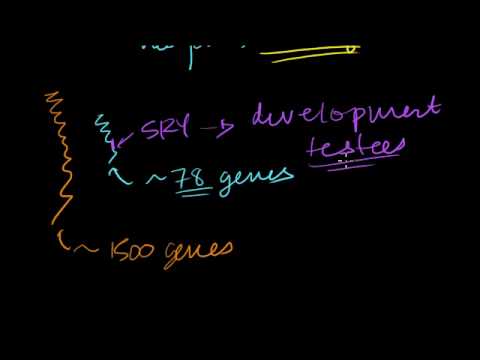 SRY → development
testees
~ 78 genes
~ 1500 genes